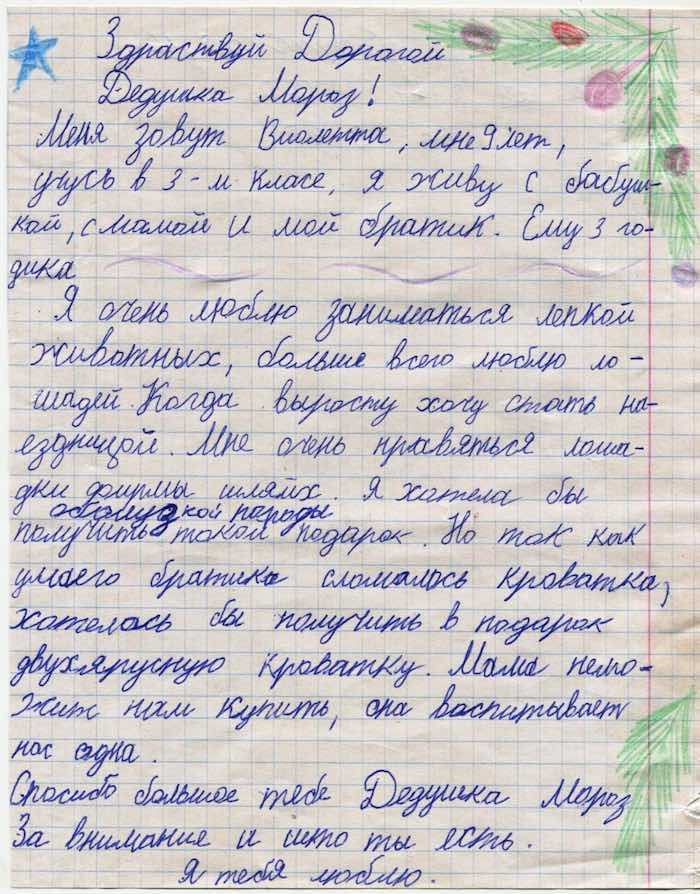 Здраствуй Дорогой
Дедушка Мороз!
Меня зовут Виолетта, мне 9 лет,
учусь в 3-м класе, я живу с бабуш-
кой, с мамой и мой братик. Ему 3 го-
дика
Я очень люблю заниматься лепкой
животных, больше всего люблю ло-
шадей. Когда вырасту хочу стать на-
ездницой. Мне очень нравяться лоша-
дки фирмы шляйх. Я хотела бы
породы
получить такой подарок. Но так как
умоего братика сломалась кроватка,
хотелось бы получить в подарок
двухярусную кроватку. Мама немо-
жит нам купить, она воспитывает
нас одна.
Спасибо большое тебе Дедушка Мороз
За внимание и што ты есть.
Я тебя люблю.